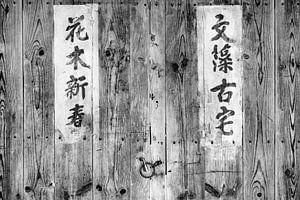 文藻古宅
花木新春